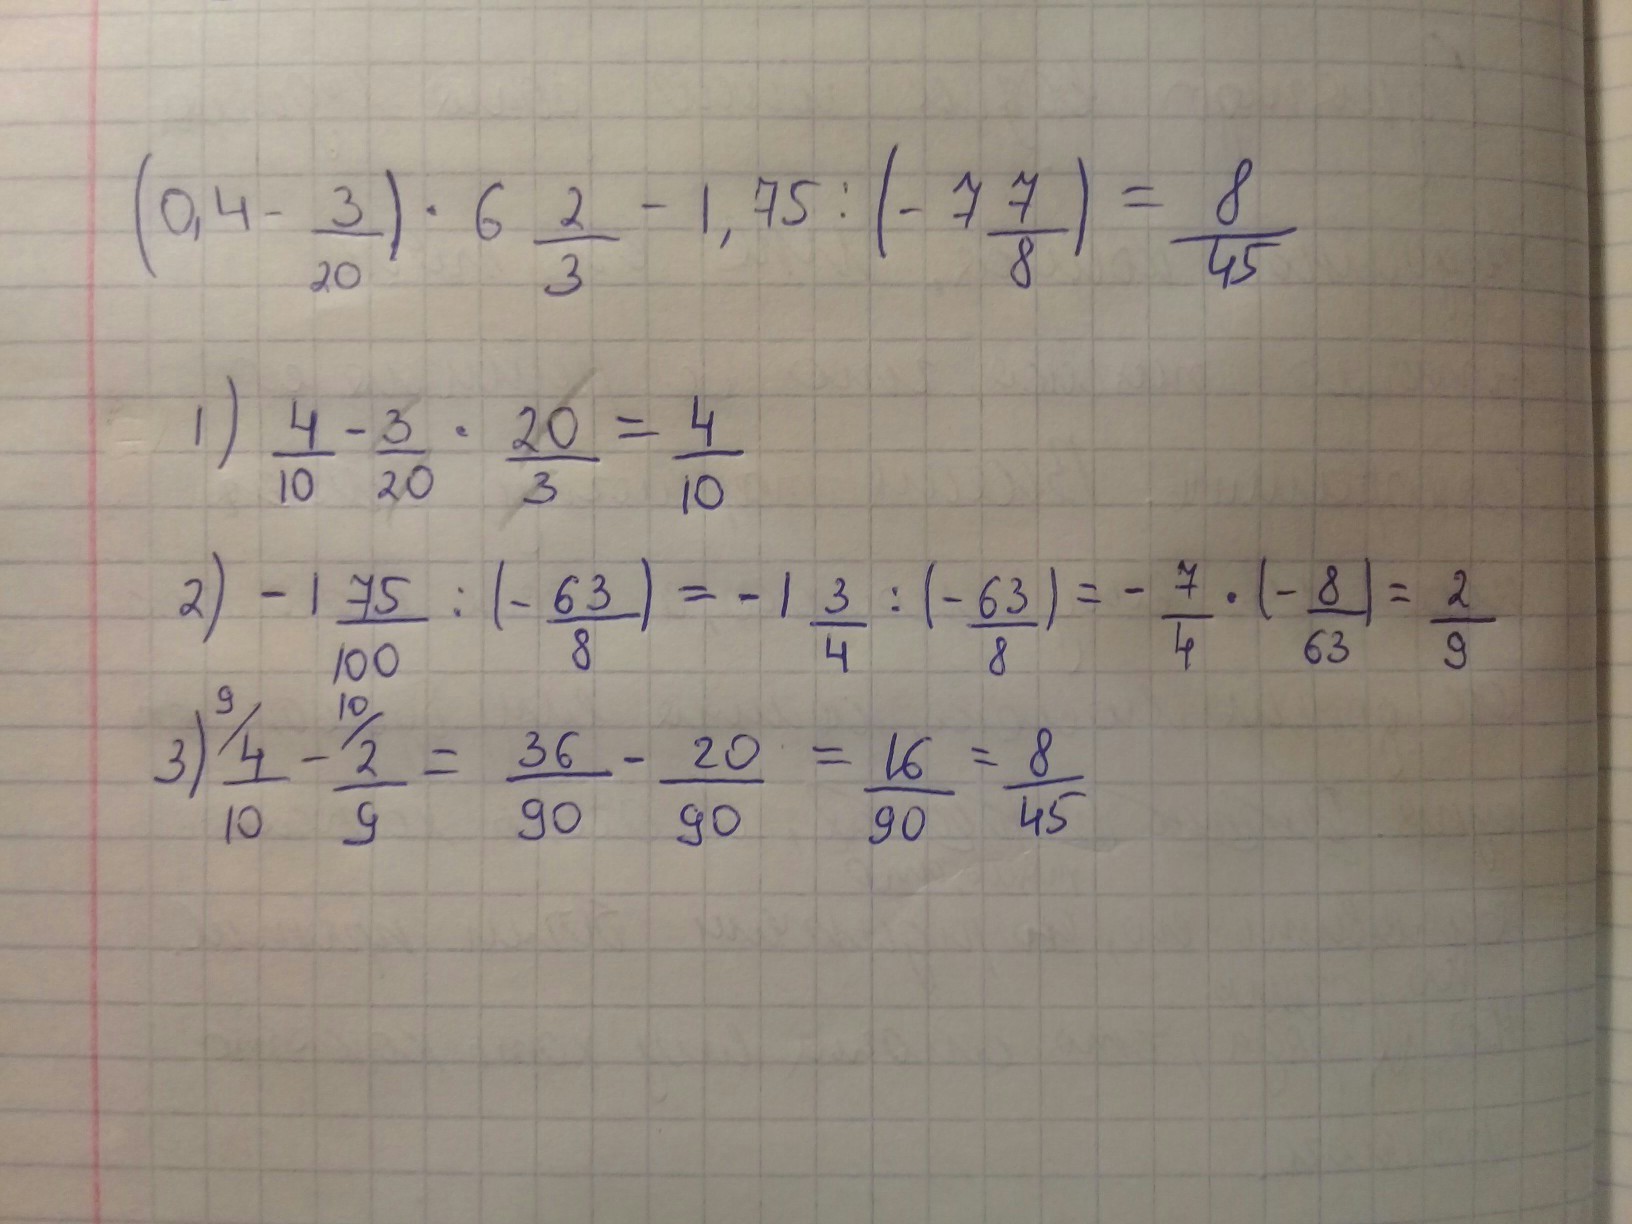 (0,4 - 3/20) · 6 2/3 - 1,75 : (- 7 7/8) = 8/45
1) 4/10 - 3/20 · 20/3 = 4/10
2) - 1 75/100 : (- 63/8) = - 1 3/4 : (- 63/8) = - 7/4 · (- 8/63) = 2/9
3) 9/ 4/10 - 10/ 2/9 = 36/90 - 20/90 = 16/90 = 8/45